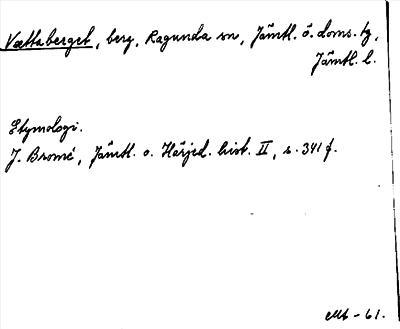 Vættaberget, berg, Ragunda sn, Jämtl. ö. doms. tg,
Jämtl. l.
Etymologi.
J. Bromé, Jämtl. o. Härjed. hist. II, s. 341 f.
-61.